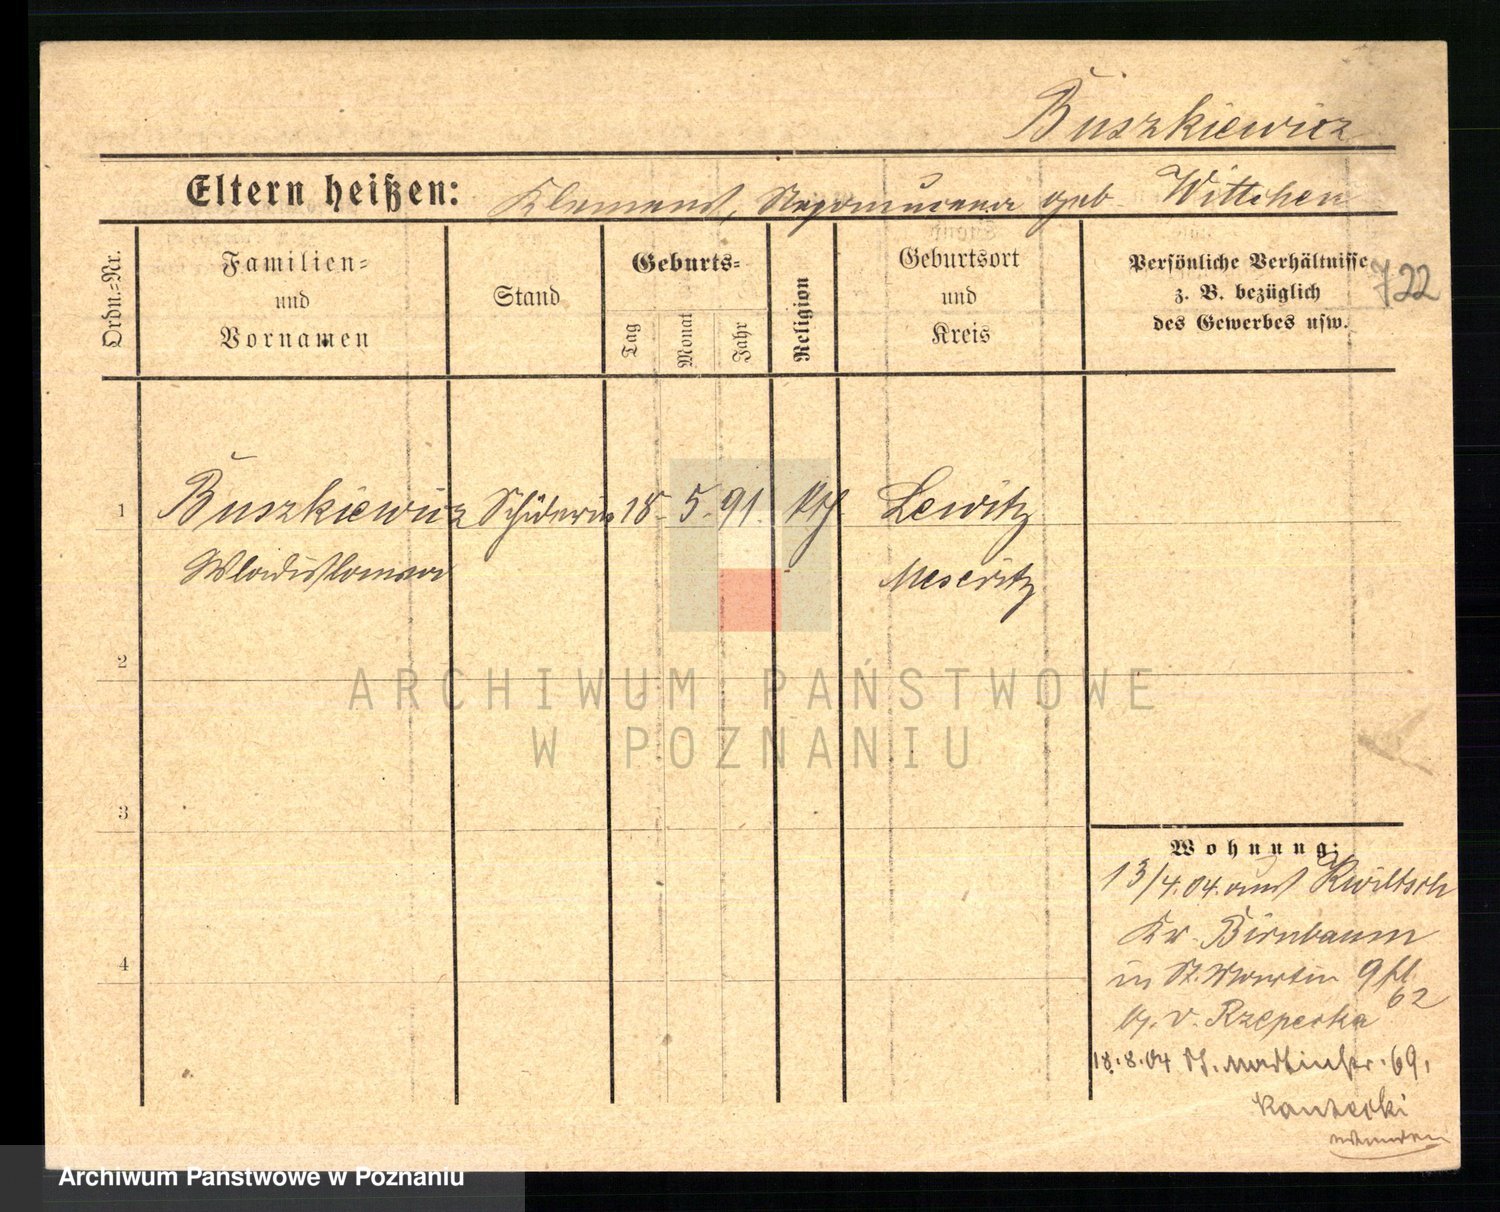 Buszkiewicz
Eltern heißen: Klemens, Nepomucena geb. Wittchen
Ordn.-Nr.
Familien-
und
Vornamen
Stand
Geburts-
Tag
Monat
Jahr
Religion
Geburtsort
und
Kreis
Persönliche Verhältnisse
z. B. bezüglich
des Gewerbes usw.
722
1 Buszkiewicz Schülerin 18. 5. 91. kth Lewitz
Wladislawa Meseritz
2
3
4
Wohnung:
13/4.04. aus Kwiltsch
Kr. Birnbaum
in St. Martin 62
b. v. Rzepecka
18.8.04 St. Martinstr. 69,
Kantecki
ARCHIWUM PAŃSTWOWE
W POZNANIU
Archiwum Państwowe w Poznaniu